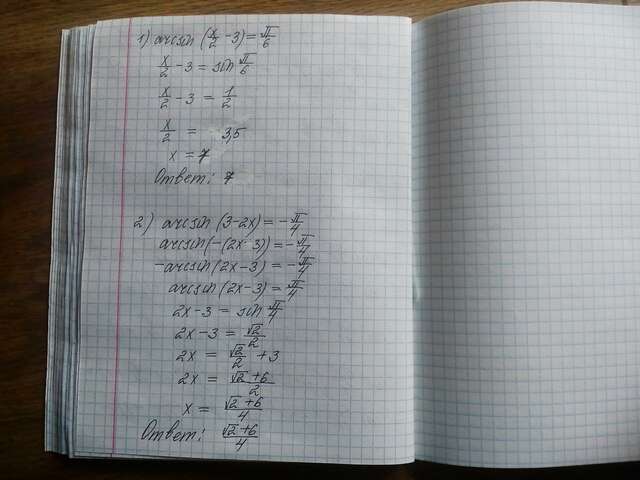 1) arcsin (x/2 - 3) = π/6
x/2 - 3 = sin π/6
x/2 - 3 = 1/2
x/2 = 3,5
x = 7
Ответ: 7
2) arcsin (3-2x) = - π/4
arcsin (-(2x-3)) = - π/4
-arcsin (2x-3) = - π/4
arcsin (2x-3) = π/4
2x-3 = sin π/4
2x-3 = √2/2
2x = √2/2 +3
2x = √2+6/2
x = √2+6/4
Ответ: √2+6/4